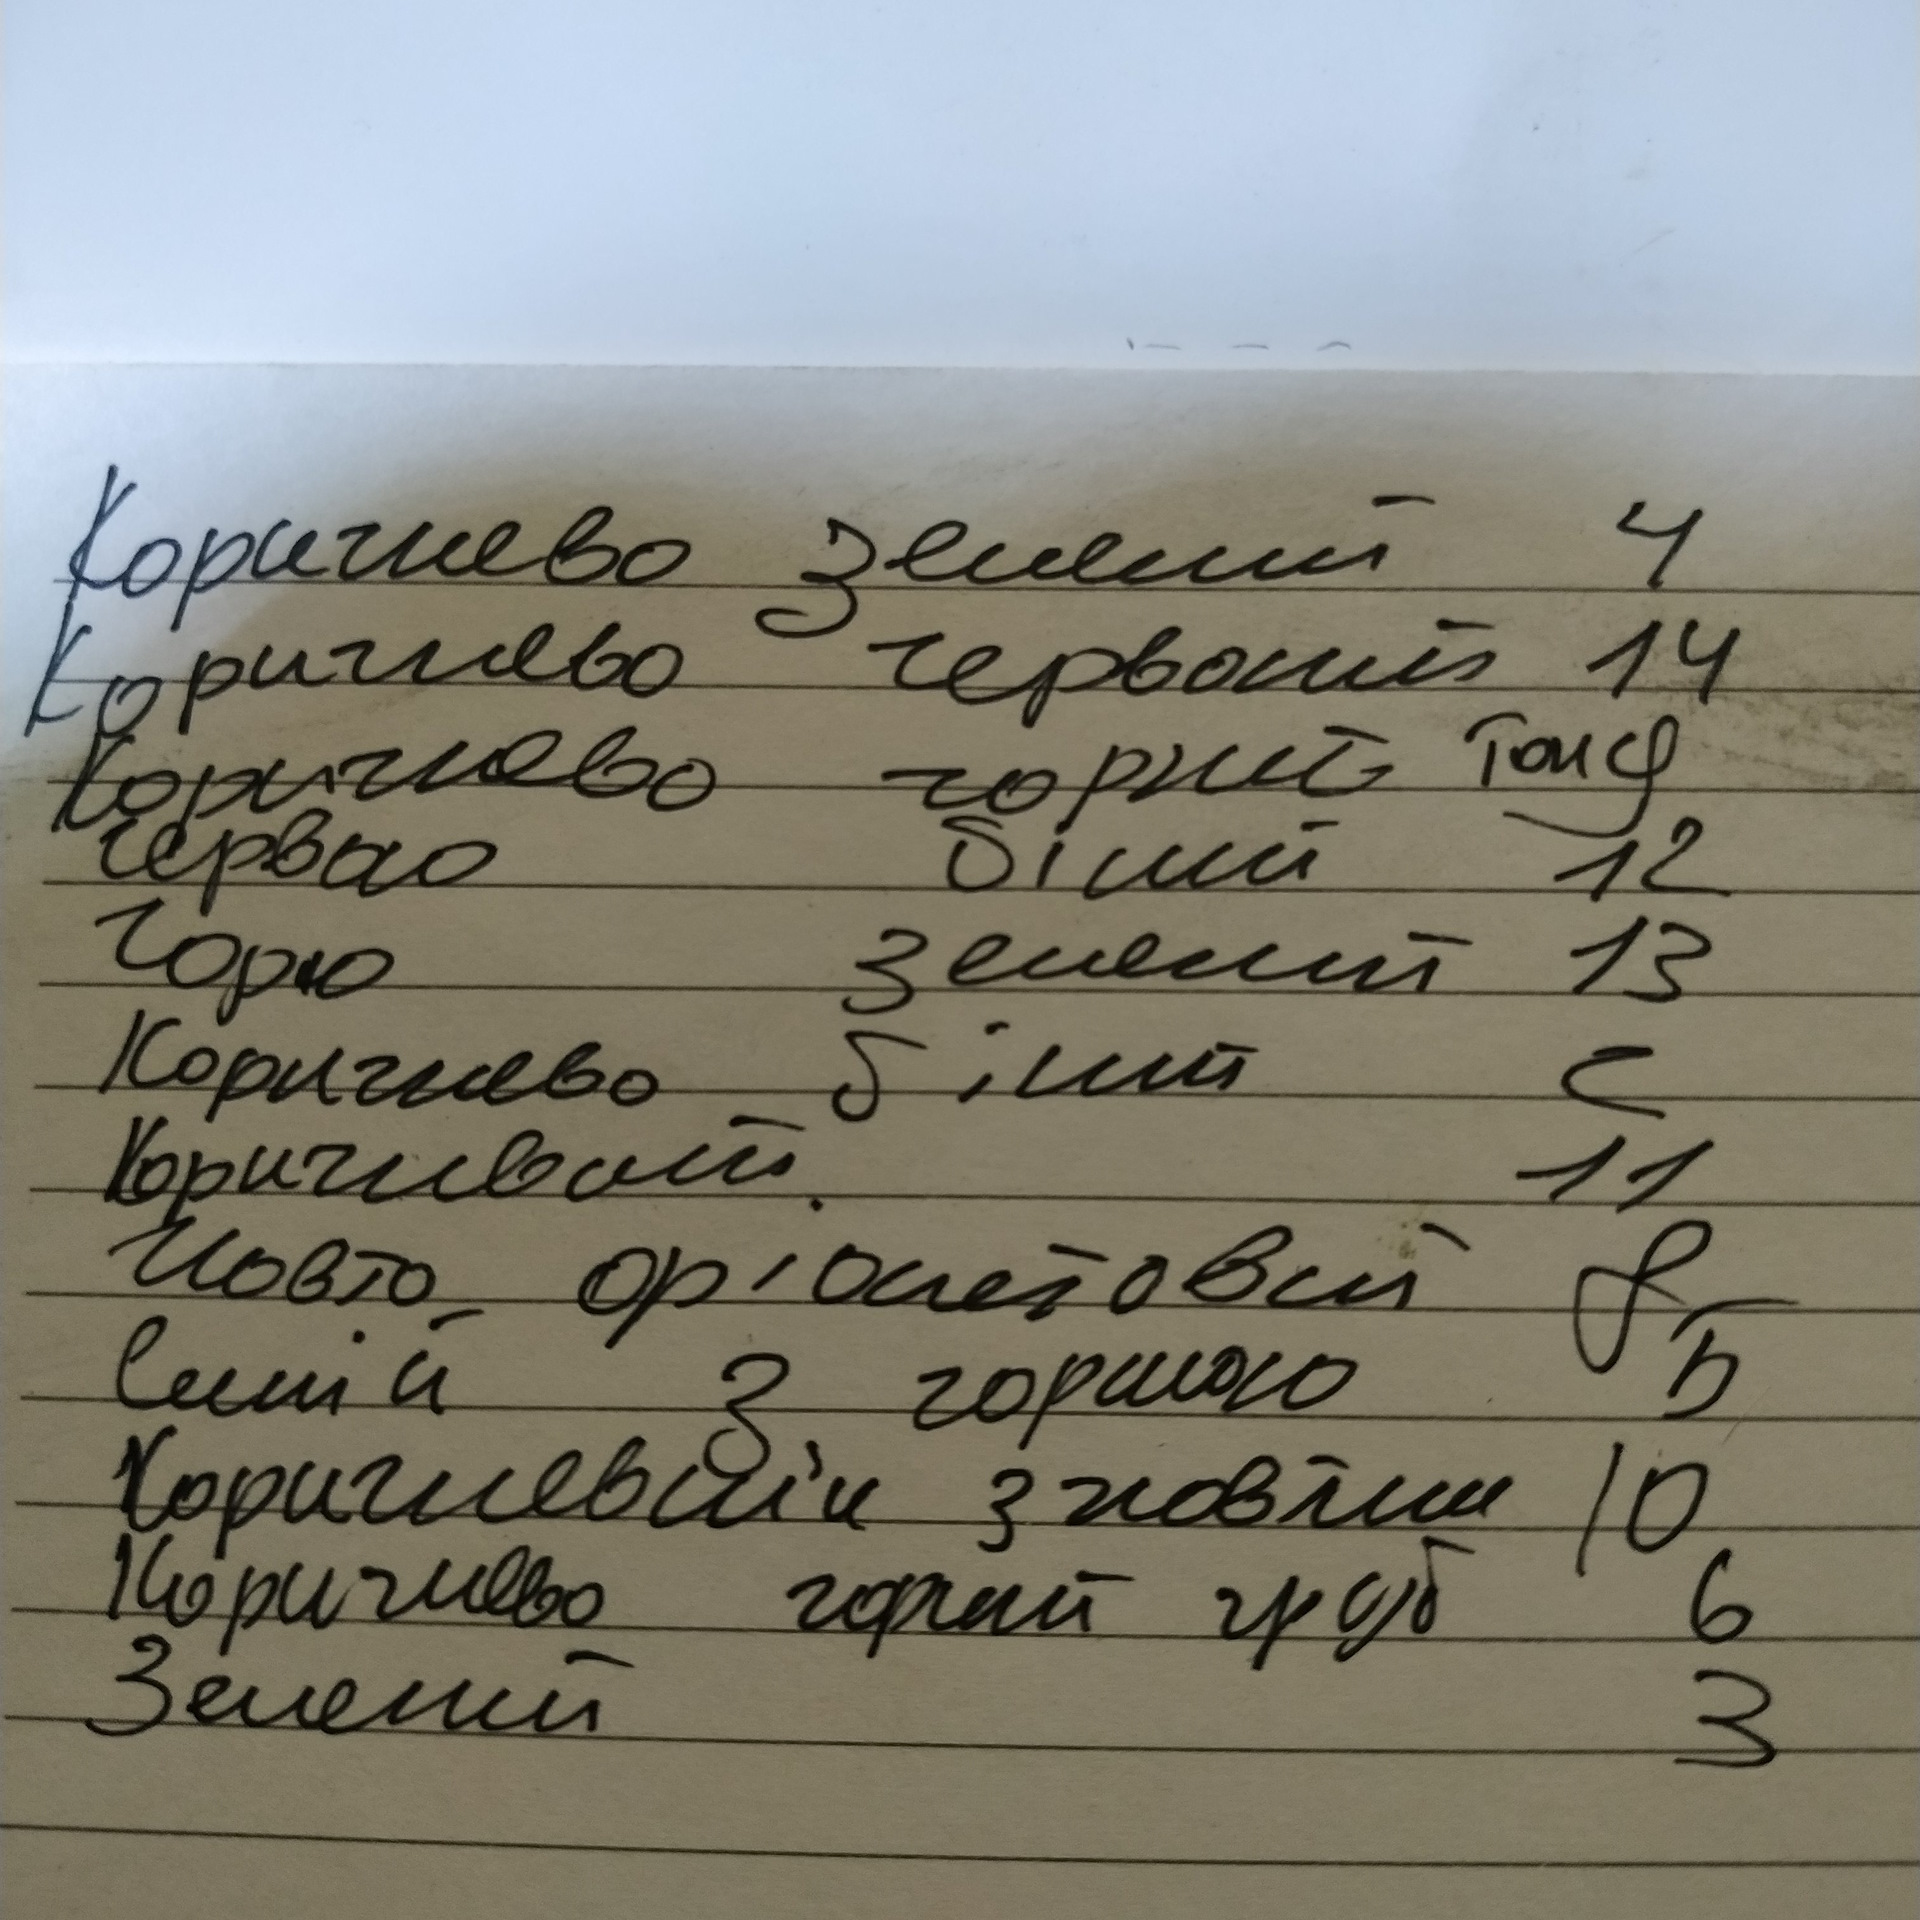 Коричнево зелений 4
Коричнево червоний 14
Коричнево чорний тон 9
Червно білий 12
Чорно зелений 13
Коричнево білий 2
Коричневий. 11
Жовто фіолетовий 8
Синій з чорною 5
Коричневий з жовтим 10
Коричнево чорний груб 6
Зелений 3